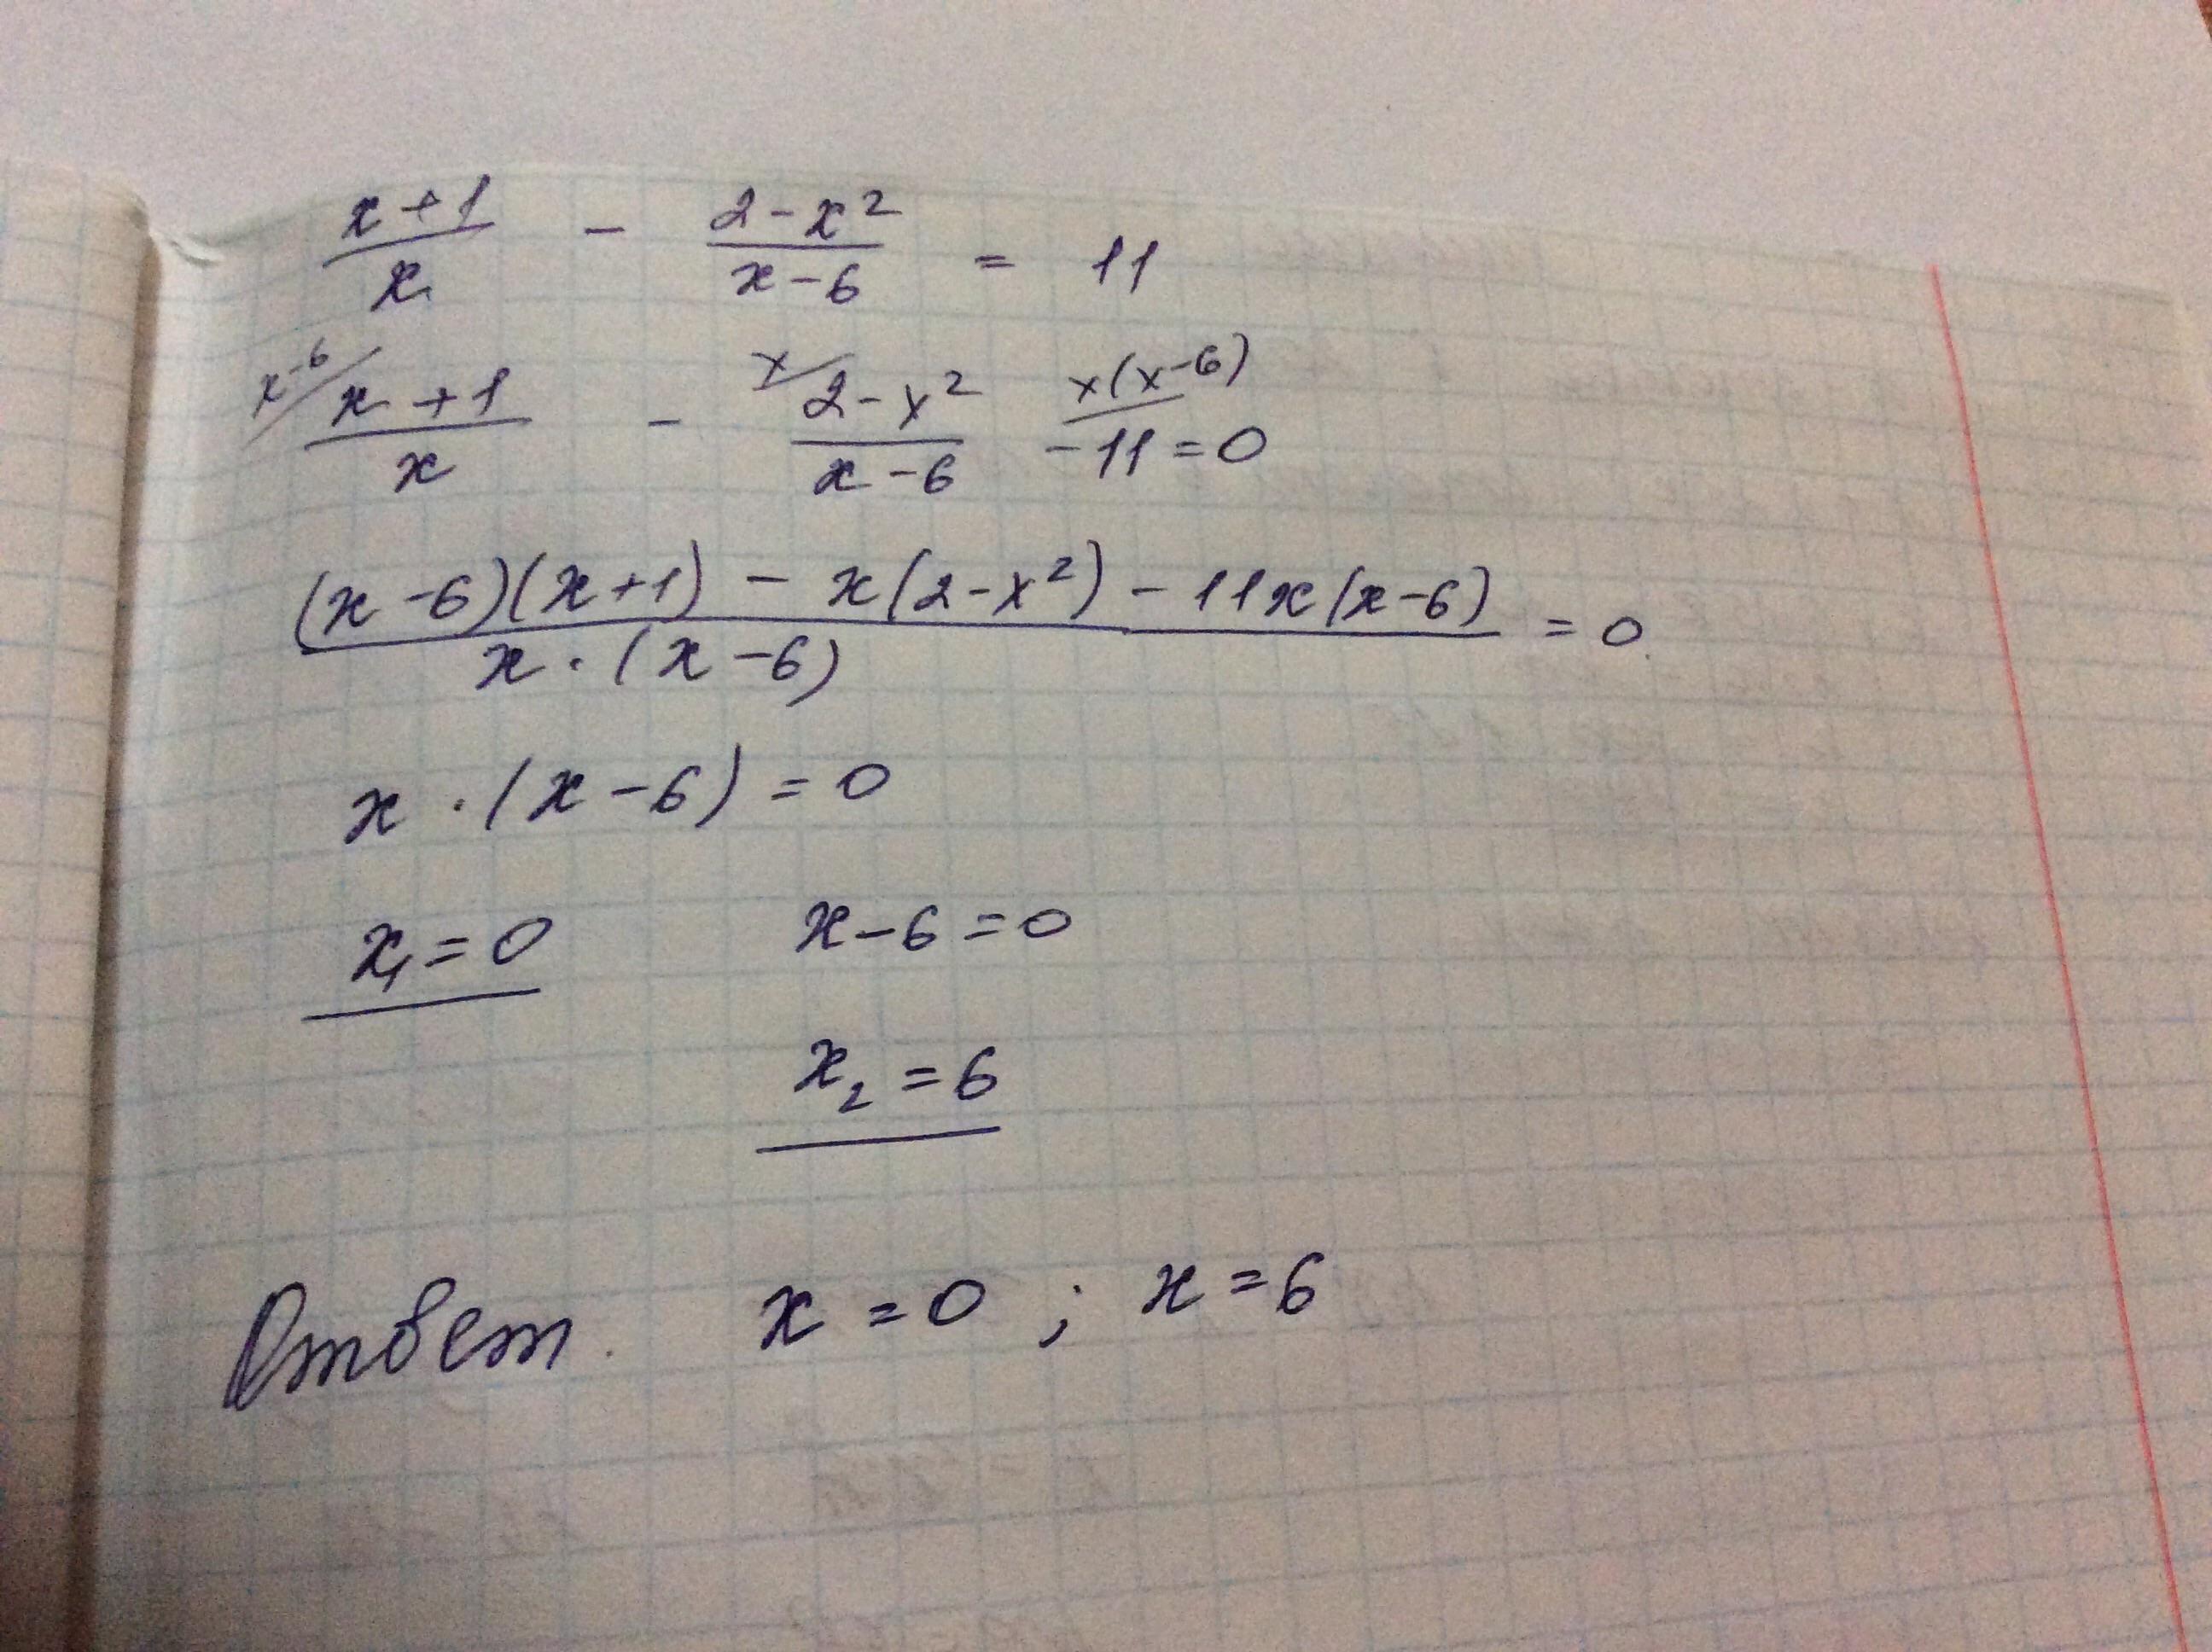 x+1/x - 2-x²/x-6 = 11
x-6/ x+1/x - x/ 2-x²/x-6 x(x-6)/ -11=0
(x-6)(x+1) - x(2-x²) - 11x(x-6)/x·(x-6) = 0
x·(x-6)=0
x₁=0 x-6=0
x₂=6
Ответ. x=0; x=6